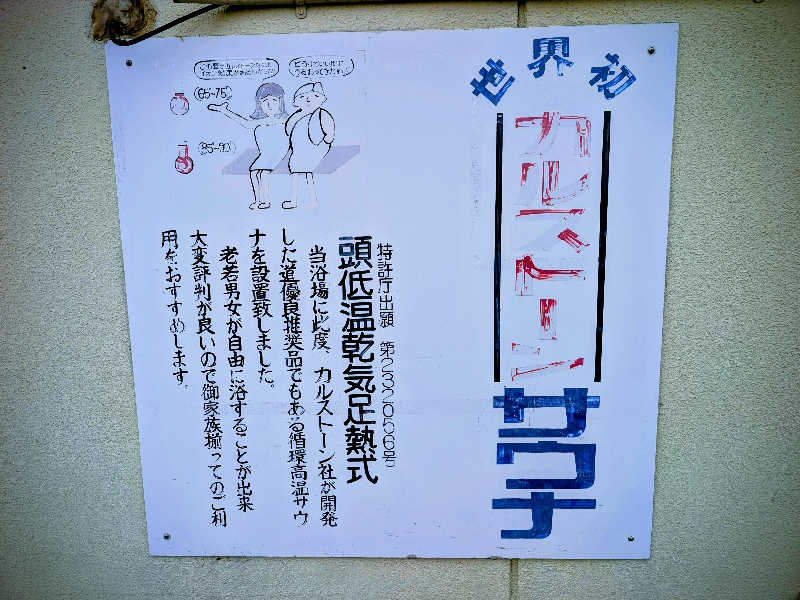 世界初
カルストーン
サウナ
特許庁出願 第232056号
頭低温乾気足熱式
当浴場に此度、カルストーン社が開発
した道優良推奨品でもある循環高温サウ
ナを設置致しました。
老若男女が自由に浴することが出来
大変評判が良いので御家族揃ってのご利
用をおすすめします。
(65~75)
(85~90)